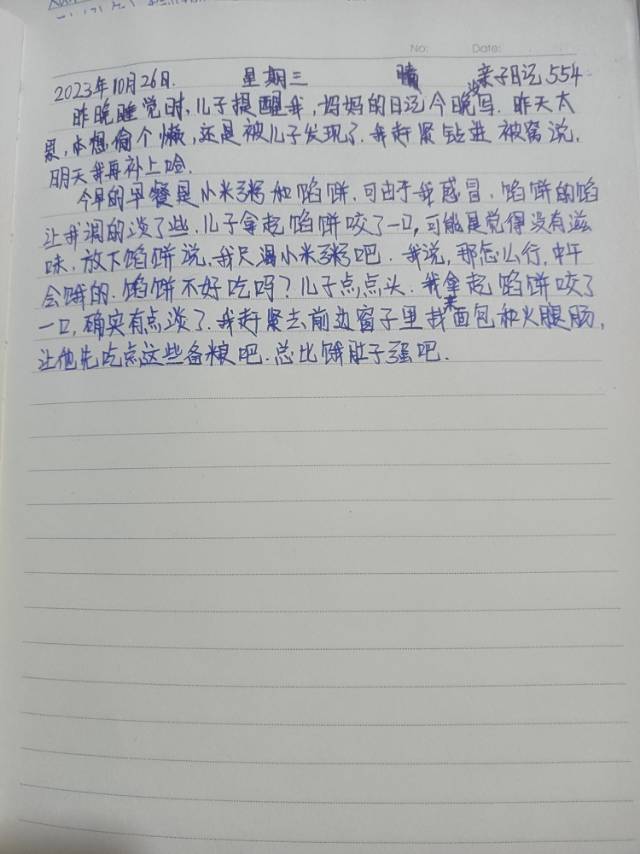 No: Date:
2023年10月26日. 星期三 晴 亲子日记 554
昨晚睡觉时, 儿子提醒我, 妈妈的日记今晚没写. 昨天太
累, 本想偷个懒, 还是被儿子发现了. 我赶紧钻进被窝说,
明天我再补上哈.
今早的早餐是小米粥和馅饼, 可由于我感冒, 馅饼的馅
让我调的淡了些. 儿子拿起馅饼咬了一口, 可能是觉得没有滋
味, 放下馅饼说, 我只喝小米粥吧. 我说, 那怎么行, 中午
会饿的. 馅饼不好吃吗? 儿子点点头. 我拿起馅饼咬了
一口, 确实有点淡了. 我赶紧去前边窗子里找来面包和火腿肠,
让他先吃点这些备粮吧. 总比饿肚子强吧.